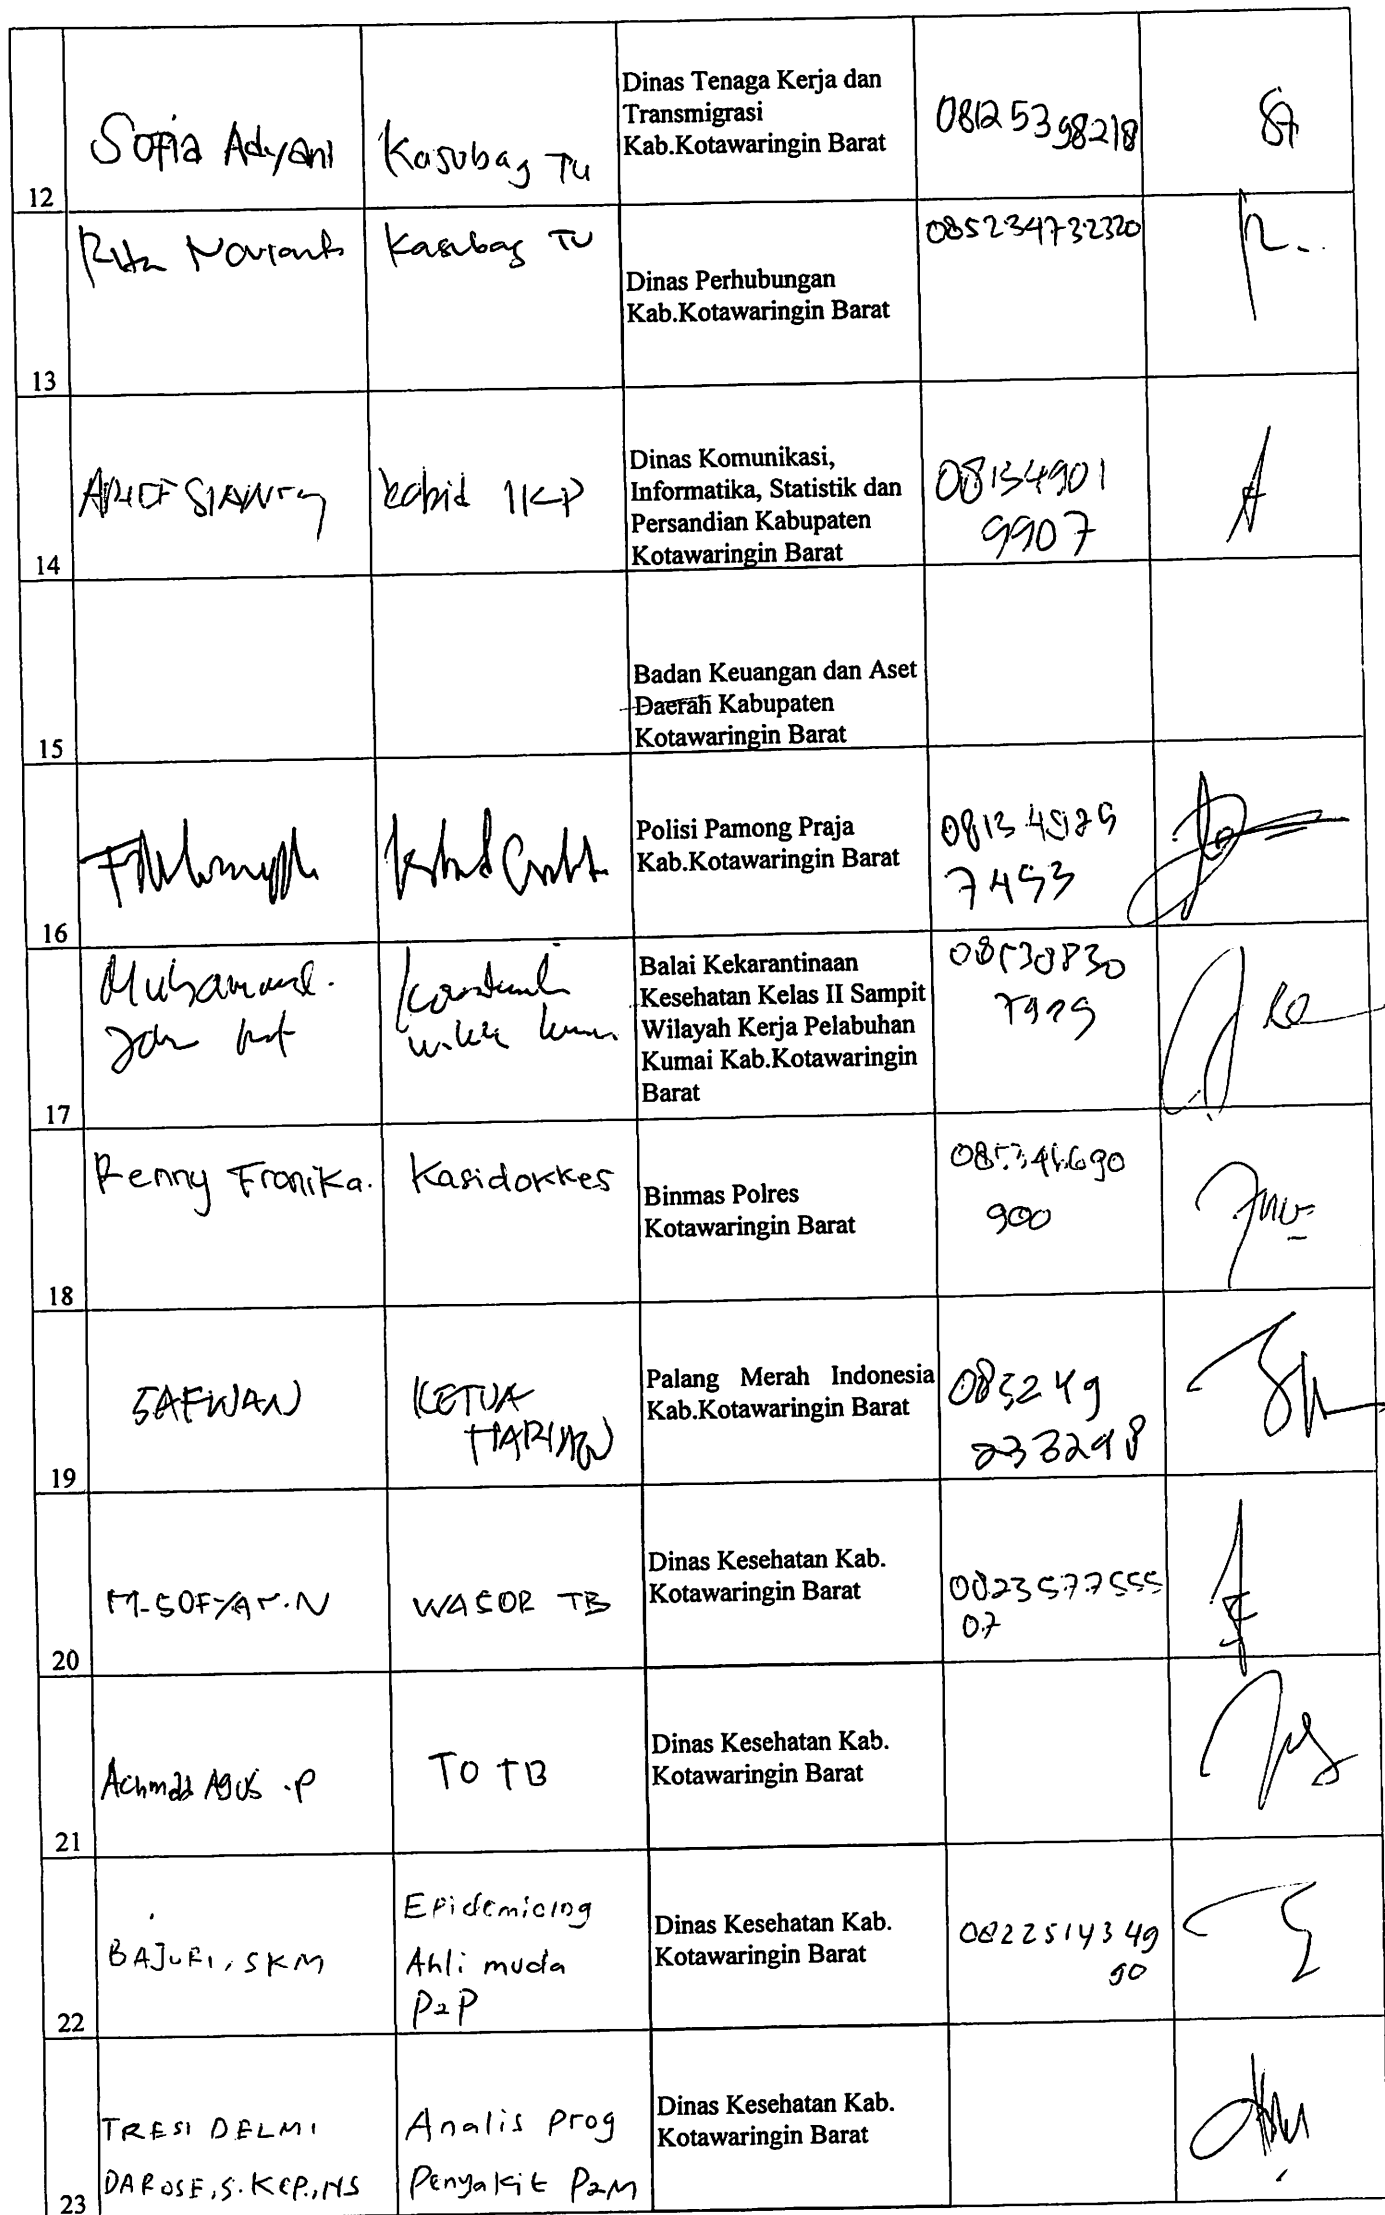 Sofia Adyani
Kasubag TU
Dinas Tenaga Kerja dan
Transmigrasi
Kab.Kotawaringin Barat
08125398218
12
Kasubag TU
Dinas Perhubungan
Kab.Kotawaringin Barat
085234732320
13
kabid IKP
Dinas Komunikasi,
Informatika, Statistik dan
Persandian Kabupaten
Kotawaringin Barat
08134901
9907
14
Badan Keuangan dan Aset
Daerah Kabupaten
Kotawaringin Barat
15
Polisi Pamong Praja
Kab.Kotawaringin Barat
16
Muhammad
Balai Kekarantinaan
Kesehatan Kelas II Sampit
Wilayah Kerja Pelabuhan
Kumai Kab.Kotawaringin
Barat
17
Renny Fronika.
Kasidokkes
Binmas Polres
Kotawaringin Barat
900
18
SAFWAN
KETUA
HARIAN
Palang Merah Indonesia
Kab.Kotawaringin Barat
085249
233298
19
M.SOFYAN.N
WASOR TB
Dinas Kesehatan Kab.
Kotawaringin Barat
07
20
Achmad Agus .P
TO TB
Dinas Kesehatan Kab.
Kotawaringin Barat
21
BAJURI, SKM
Epidemiolog
Ahli muda
P2P
Dinas Kesehatan Kab.
Kotawaringin Barat
0822514349
90
22
TRESI DELMI
DAROSE,S.KEP.,NS
Analis prog
Penyakit P2M
Dinas Kesehatan Kab.
Kotawaringin Barat
23